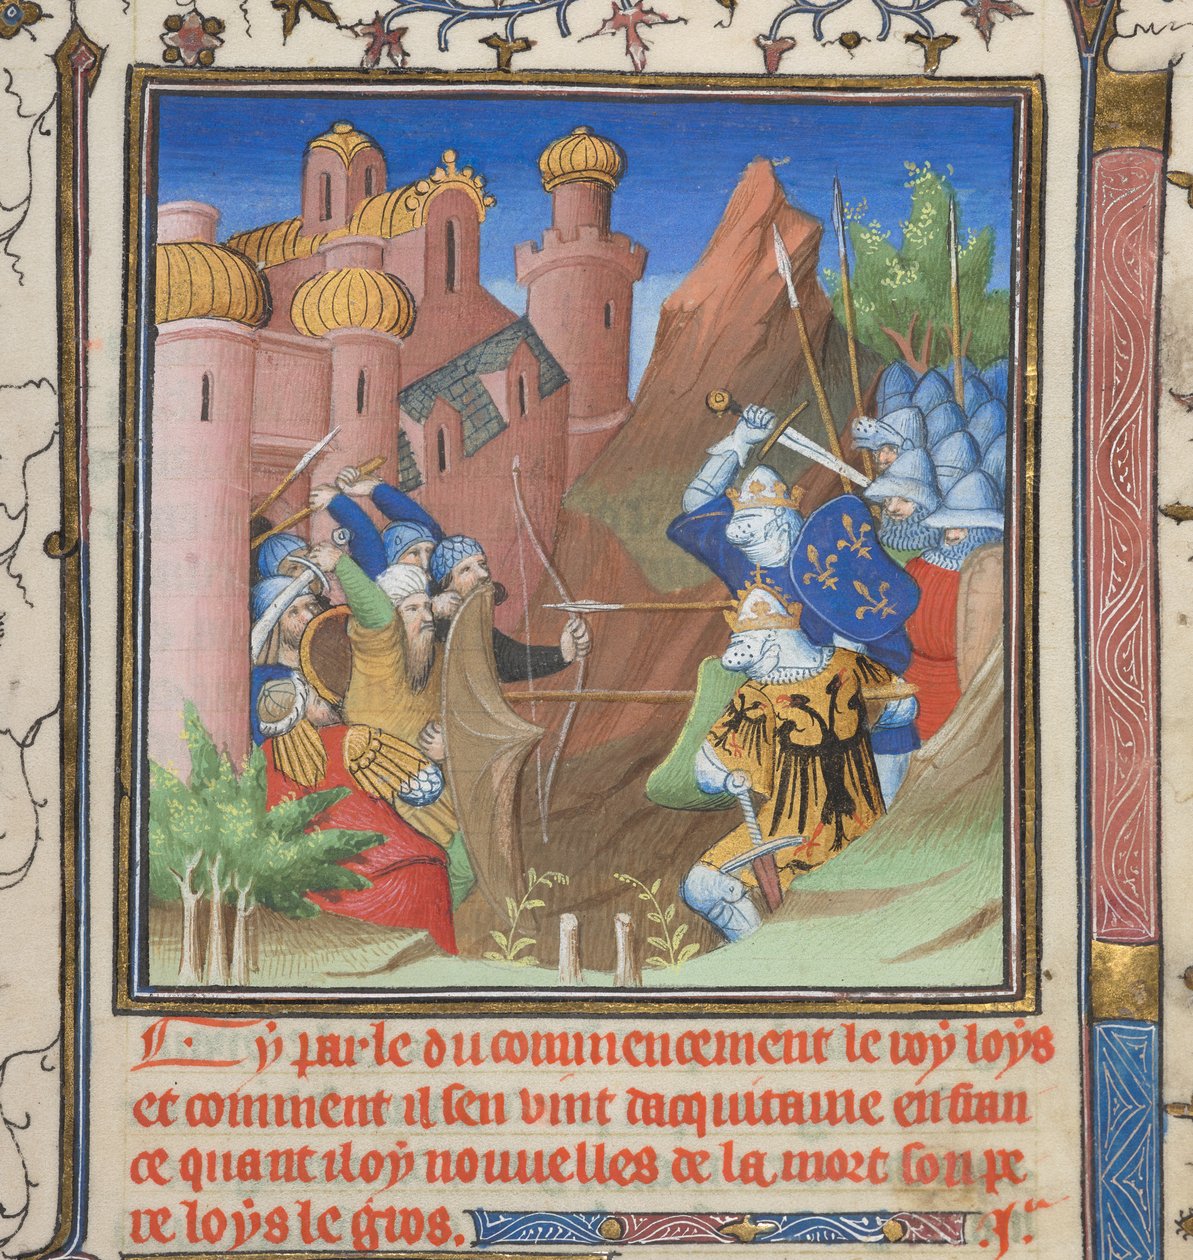 Cy par·le du commencement le roy loys
et comment il sen vint dacquitaine en fran
ce quant il oy nouuelles de la mort son pe
re loys le gros. .j.